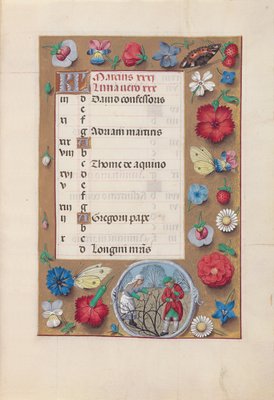 KL Marcius xxxj
Luna vero xxx
iii d David confessoris
e
xi f
g Adriani martiris
xix A
viii b
c Thome de aquino
xvi d
v e
f
xiii g
ii A Gregorii pape
b
x c
d Longini mris